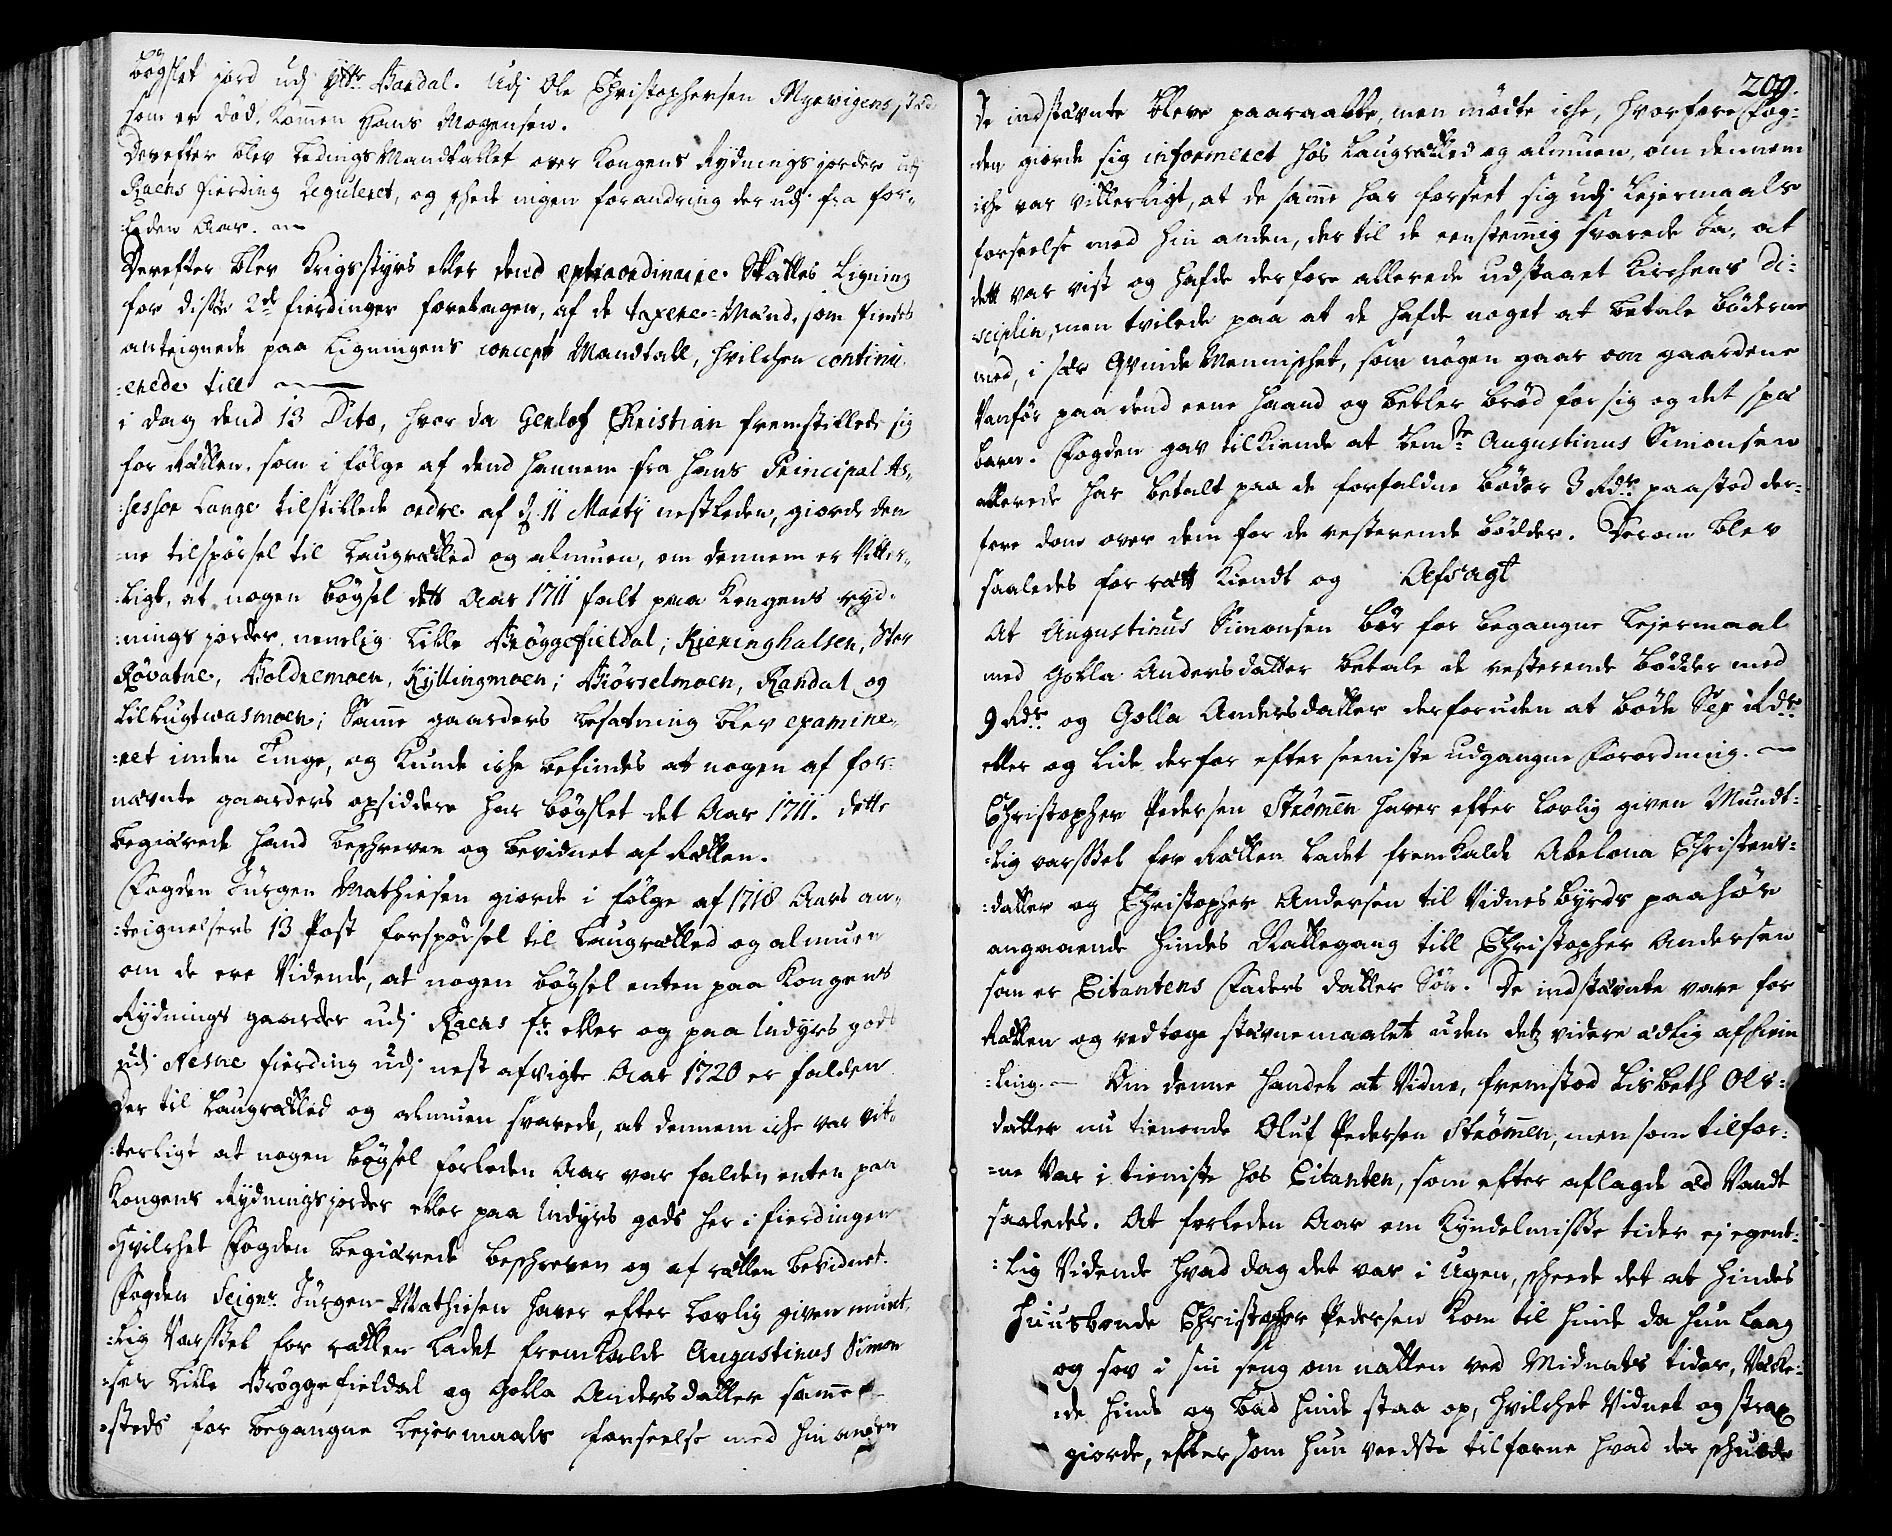 bøgslet jord udj Ytter Bardal. Udj Ole Christophersen Myrwigens stæd
som er død, kommen Hans Mogensen.
Derefter blev LedingsMandtallet over Kongens Rydningsjorder udj
Raens fierding Reguleret, og skede ingen forandring der udj fra for-
:leden Aar.
Derefter blev Krigsstyrs eller dend extraordinaire Skattes Ligning
for disse 2de fierdinger foretagen, af de taxere-Mænd, som findes
anteignede paa Ligningens concept Mandtall, hvilchen continu-
:erede till
i dag dend 13 Dito, hvor da Gerlof Christian fremstillede sig
for Rætten, som i følge af dend hannem fra hans Principal As-
:sessor Lange tilstillede ordre af d. 11 Martij nestleden, giorde den
:ne tilspørsel til Laugrættet og almuen, om dennem er Vitter-
:Ligt, at nogen bøgsel dett Aar 1711 falt paa Kongens ryd-
:nings jorder, nemlig Lille Brøggefieldal; Kieringhalsen, Stor
Røvatne, Boldremoen, Kyllingmoen; Børselmoen, Randal og
Lillugtwasmoen; Samme gaarders besætning blev examine-
:ret inden Tinge, og Kunde iche befindes at nogen af for-
nævnte gaarders opsiddere har bøgslet det Aar 1711. dette
begiærede hand beschreven og bevidnet af Rætten.
Fogden Jürgen Mathiesen giorde i følge af 1718 Aars an-
:teignelsers 13 Post forspørsel til Laugrættet og almuen
om de ere Vidende, at nogen bøgsel enten paa Kongens
Rydnings gaarder udj Raens fr. eller og paa Indyrs gods
udj Nesne fierding udj nest afvigte Aar 1720 er falden
Der til Laugrættet og almuen svarede, at dennem iche var vit-
:terligt at nogen bøgsel forleden Aar var falden enten paa
Kongens Rydningsjorder eller paa Indyrs gods her i fierdingen
Hvilchet Fogden begiærede beschreven og af rætten bevidnet.
Fogden Seignr. Jürgen Mathiesen haver efter Lovlig given munt-
:Lig Varssel for rætten Ladet fremkalde Augustinus Simon
:sen Lille Brøggefieldal og Golla Andersdatter samme
:steds for begangne Lejermaals forseelse med hin anden
209.
De indstævnte bleve paaraabte, men mødte iche, hvorfore Fog-
:den giorde sig informeret hos Laugrættet og almuen, om dennem
iche var vitterligt, at de samme har forseet sig udj Lejermaals
forseelse med hin anden, der til de eenstemmig svarede Ja, at
dett var vist og hafde derfore allerede udstaaet Kirchens Di-
:sciplin, men tvilede paa at de hafde noget at betale bøderne
med, i sær QvindeMennischet, som nøgen gaar om gaardene
Vanfør paa dend eene haand og betler brød for sig og det spæ
barn. Fogden gav tilkiende at bemte Augustinus Simonsen
allerede har betalt paa de forfaldne bøder 3 Rdr. paastod der-
fore dom over dem for de resterende bødder. Derom blev
saaledes for rætt kiendt og Afsagt
At Augustinus Simonsen bør for begangne Lejermaal
med Golla Andersdatter betale de resterende bødder med
9 Rdr. og Golla Andersdatter derforuden at bøde Sex Rdr.
eller og Lide derfor efter seeniste udgangne Forordning.
Christopher Pedersen Strømen haver efter Lovlig given Mundt-
:Lig varssel for Rætten Ladet fremkalde Abelona Christens-
:datter og Christopher Andersen til Vidnes byrds paahør
angaaende hindes Rættegang till Christopher Andersen
som er Citantens Faders datter Søn. De indstævnte vare for
Rætten og vedtoge stævnemaalet uden detz videre ædlig afhiem
:Ling. Om denne handel at Vidne, fremstod Lisbeth Ols-
datter nu tienende Oluf Pedersen Strømen, men som tilfor-
:ne Var i tieniste hos Citanten, som efter aflagde æd Vandt
saaledes. At forleden Aar om Kyndelmisse tider ej egent-
:Lig Vidende hvad dag det var i Ugen, scheede det at hindes
Huusbonde Christopher Pedersen kom til hinde da hun Laag
og sov i sin seng om natten ved Midnats tider, Vække-
:de hinde og bad hinde staa op, hvilchet Vidnet og strax
giorde, efter som hun veedste tilforne hvad der schulde